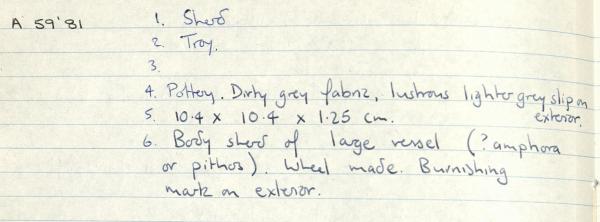 A 59'81 1. Sherd
2. Troy.
3.
4. Pottery. Dirty grey fabric, lustrous lighter grey slip on
exterior.
5. 10.4 x 10.4 x 1.25 cm.
6. Body sherd of large vessel (? amphora
or pithos). Wheel made. Burnishing
mark on exterior.